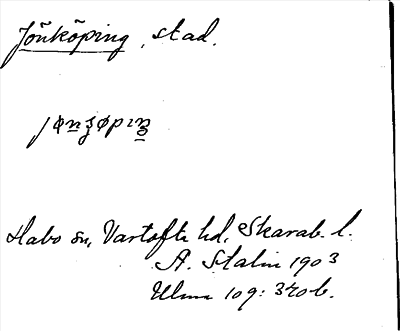 Jönköping, stad.
Habo sn, Vartofta hd, Skarab. l.
A. Stalin 1903
Ulma 109: 340 b.